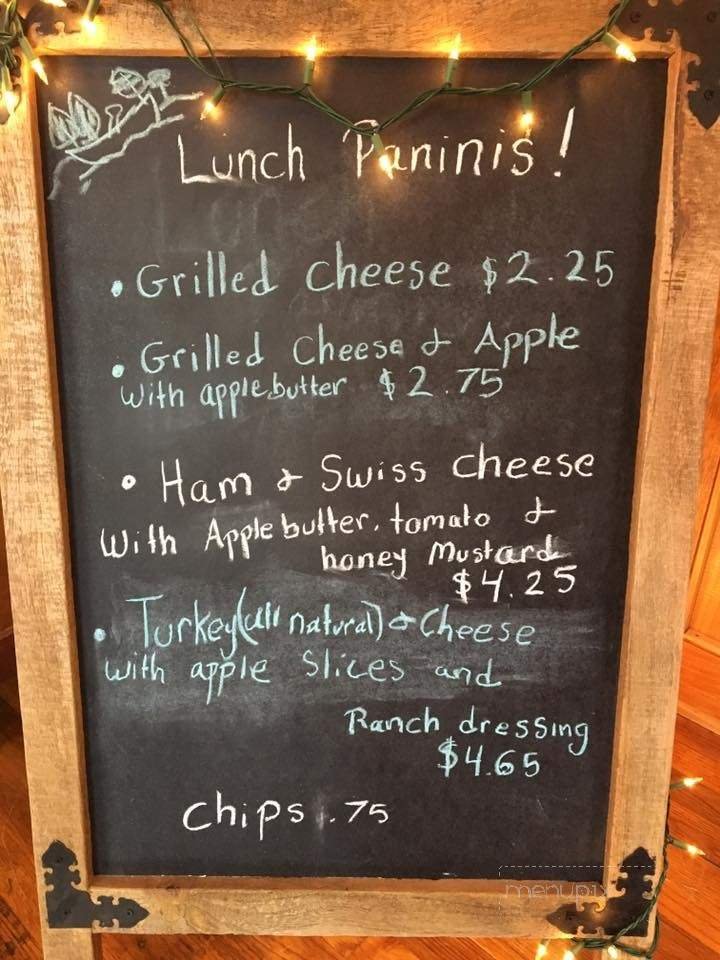 Lunch Paninis!
• Grilled Cheese $2.25
• Grilled Cheese & Apple
with apple butter $2.75
• Ham & Swiss cheese
With Apple butter, tomato &
honey Mustard
$4.25
• Turkey (all natural) & Cheese
with apple Slices and
Ranch dressing
$4.65
Chips .75
menupix